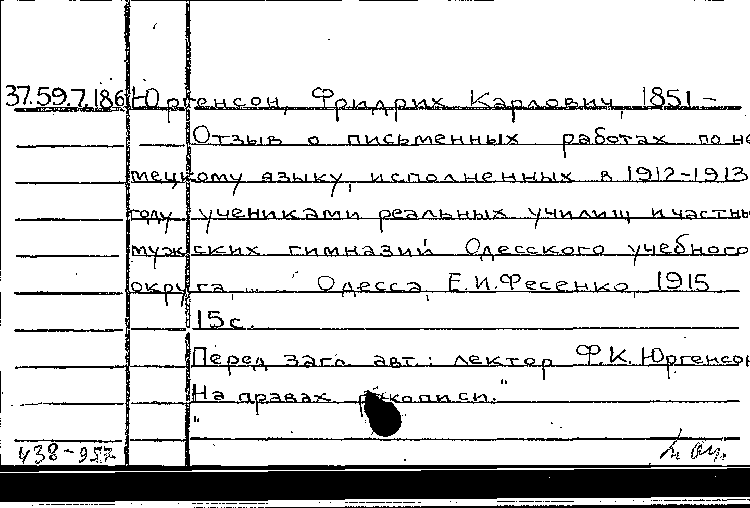 37.59.7.186 Юргенсон, Фридрих Карлович, 1851 -
Отзыв о письменных работах по не
мецкому языку, исполненных в 1912-1913
году учениками реальных училищ и частны
мужских гимназий Одесского учебного
округа, ... Одесса, Е.И.Фесенко, 1915
15 с.
Перед загл. авт.: лектор Ф.К. Юргенсон
На правах рукописи."
"
438-957